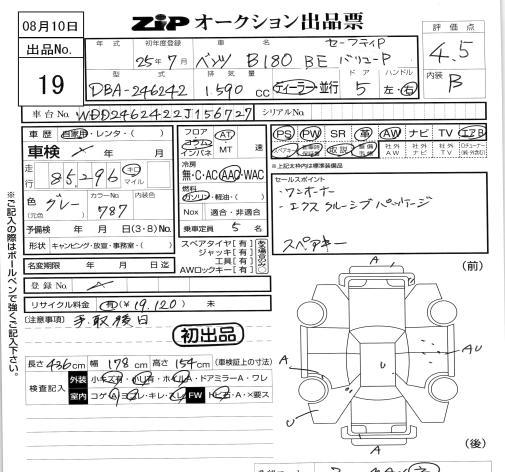 08月10日
ZiP オークション出品票
出品No.
19
年式 初年度登録 車名
25年7月 ベンツ B180 BE セーフティP バリューP
型式 排気量 ドア ハンドル
DBA-246242 1,590 cc ディーラー・並行 5 左・右
評価点
4.5
内装 B
車台No. WDD2462422J156727 シリアルNo.
車歴 自家用・レンタ・( )
車検 年 月
走行 85,296 キロ マイル
色 (元色) グレー カラーNo. 787 内装色
予備検 年 月 日(3・8)No.
形状 キャンピング・放宣・事務室・( )
名変期限 年 月 日迄
登録No.
リサイクル料金 有(¥19,120) 未
(注意事項) 書取後日
初出品
フロア コラム インパネ AT MT 速
冷房
無・C・AC・AAC・WAC
燃料
ガソリン・軽油・( )
Nox 適合・非適合
乗車定員 5 名
スペアタイヤ[有]
ジャッキ[有]
工具[有]
AWロックキー[有]
PS PW SR 革 AW ナビ TV エアB
スペアキー 取説 社外AW 社外ナビ 社外TV
※上記太枠内は標準装備品
セールスポイント
・ワンオーナー
・エクスクルーシブパッケージ
スペアキー
(前)
A
A
U
AU
U
A
(後)
長さ 436cm 幅 178cm 高さ 154cm (車検証上の寸法)
検査記入 外装 小キズ有・小凹有・ホイルA・ドアミラーA・ワレ
室内 コゲA・ヨゴレ・キレ・スレ FW トビ石・A・×要ス
※ご記入の際はボールペンで強くご記入下さい。